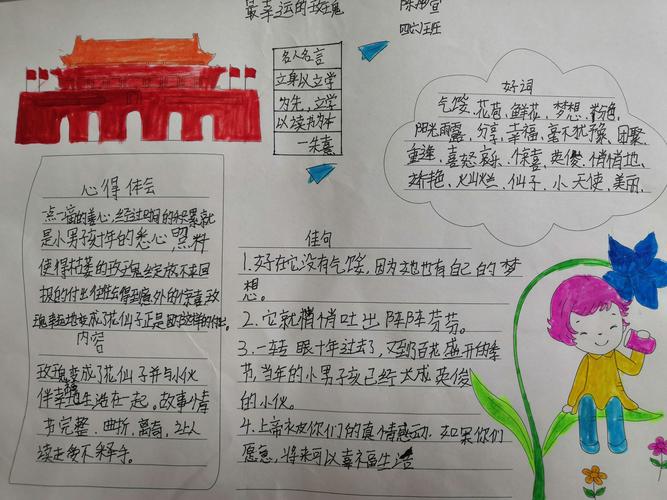 最幸运的玫瑰
四六班
名人名言
立身以立学
为先,立学
以读书为本
一朱熹
好词
气馁、花苞、鲜花、梦想、粉色、
阳光雨露、分享、幸福、毫不犹豫、团聚、
重逢、喜怒哀乐、惊喜、英俊、悄悄地、
娇艳、灿烂、仙子、小天使、美丽、
心得体会
一点一滴的善心,经过时间的积累就
是小男孩十年的悉心照料
使得枯萎的玫瑰绽放不求回
报的付出往往会得到意外的惊喜玫
瑰幸运地变成了花仙子正是因为这样的付出。
内容
玫瑰变成了花仙子并与小伙
伴幸福地生活在一起。故事情
节完整、曲折、离奇、让人
读起爱不释手。
佳句
1.好在它没有气馁,因为她也有自己的梦
想。
2.它就悄悄吐出阵阵芬芳。
3.一转眼十年过去了,又到了百花盛开的季
节,当年的小男孩已经长成英俊
的小伙。
4.上帝被你们的真情感动,如果你们
愿意,将来可以幸福生活